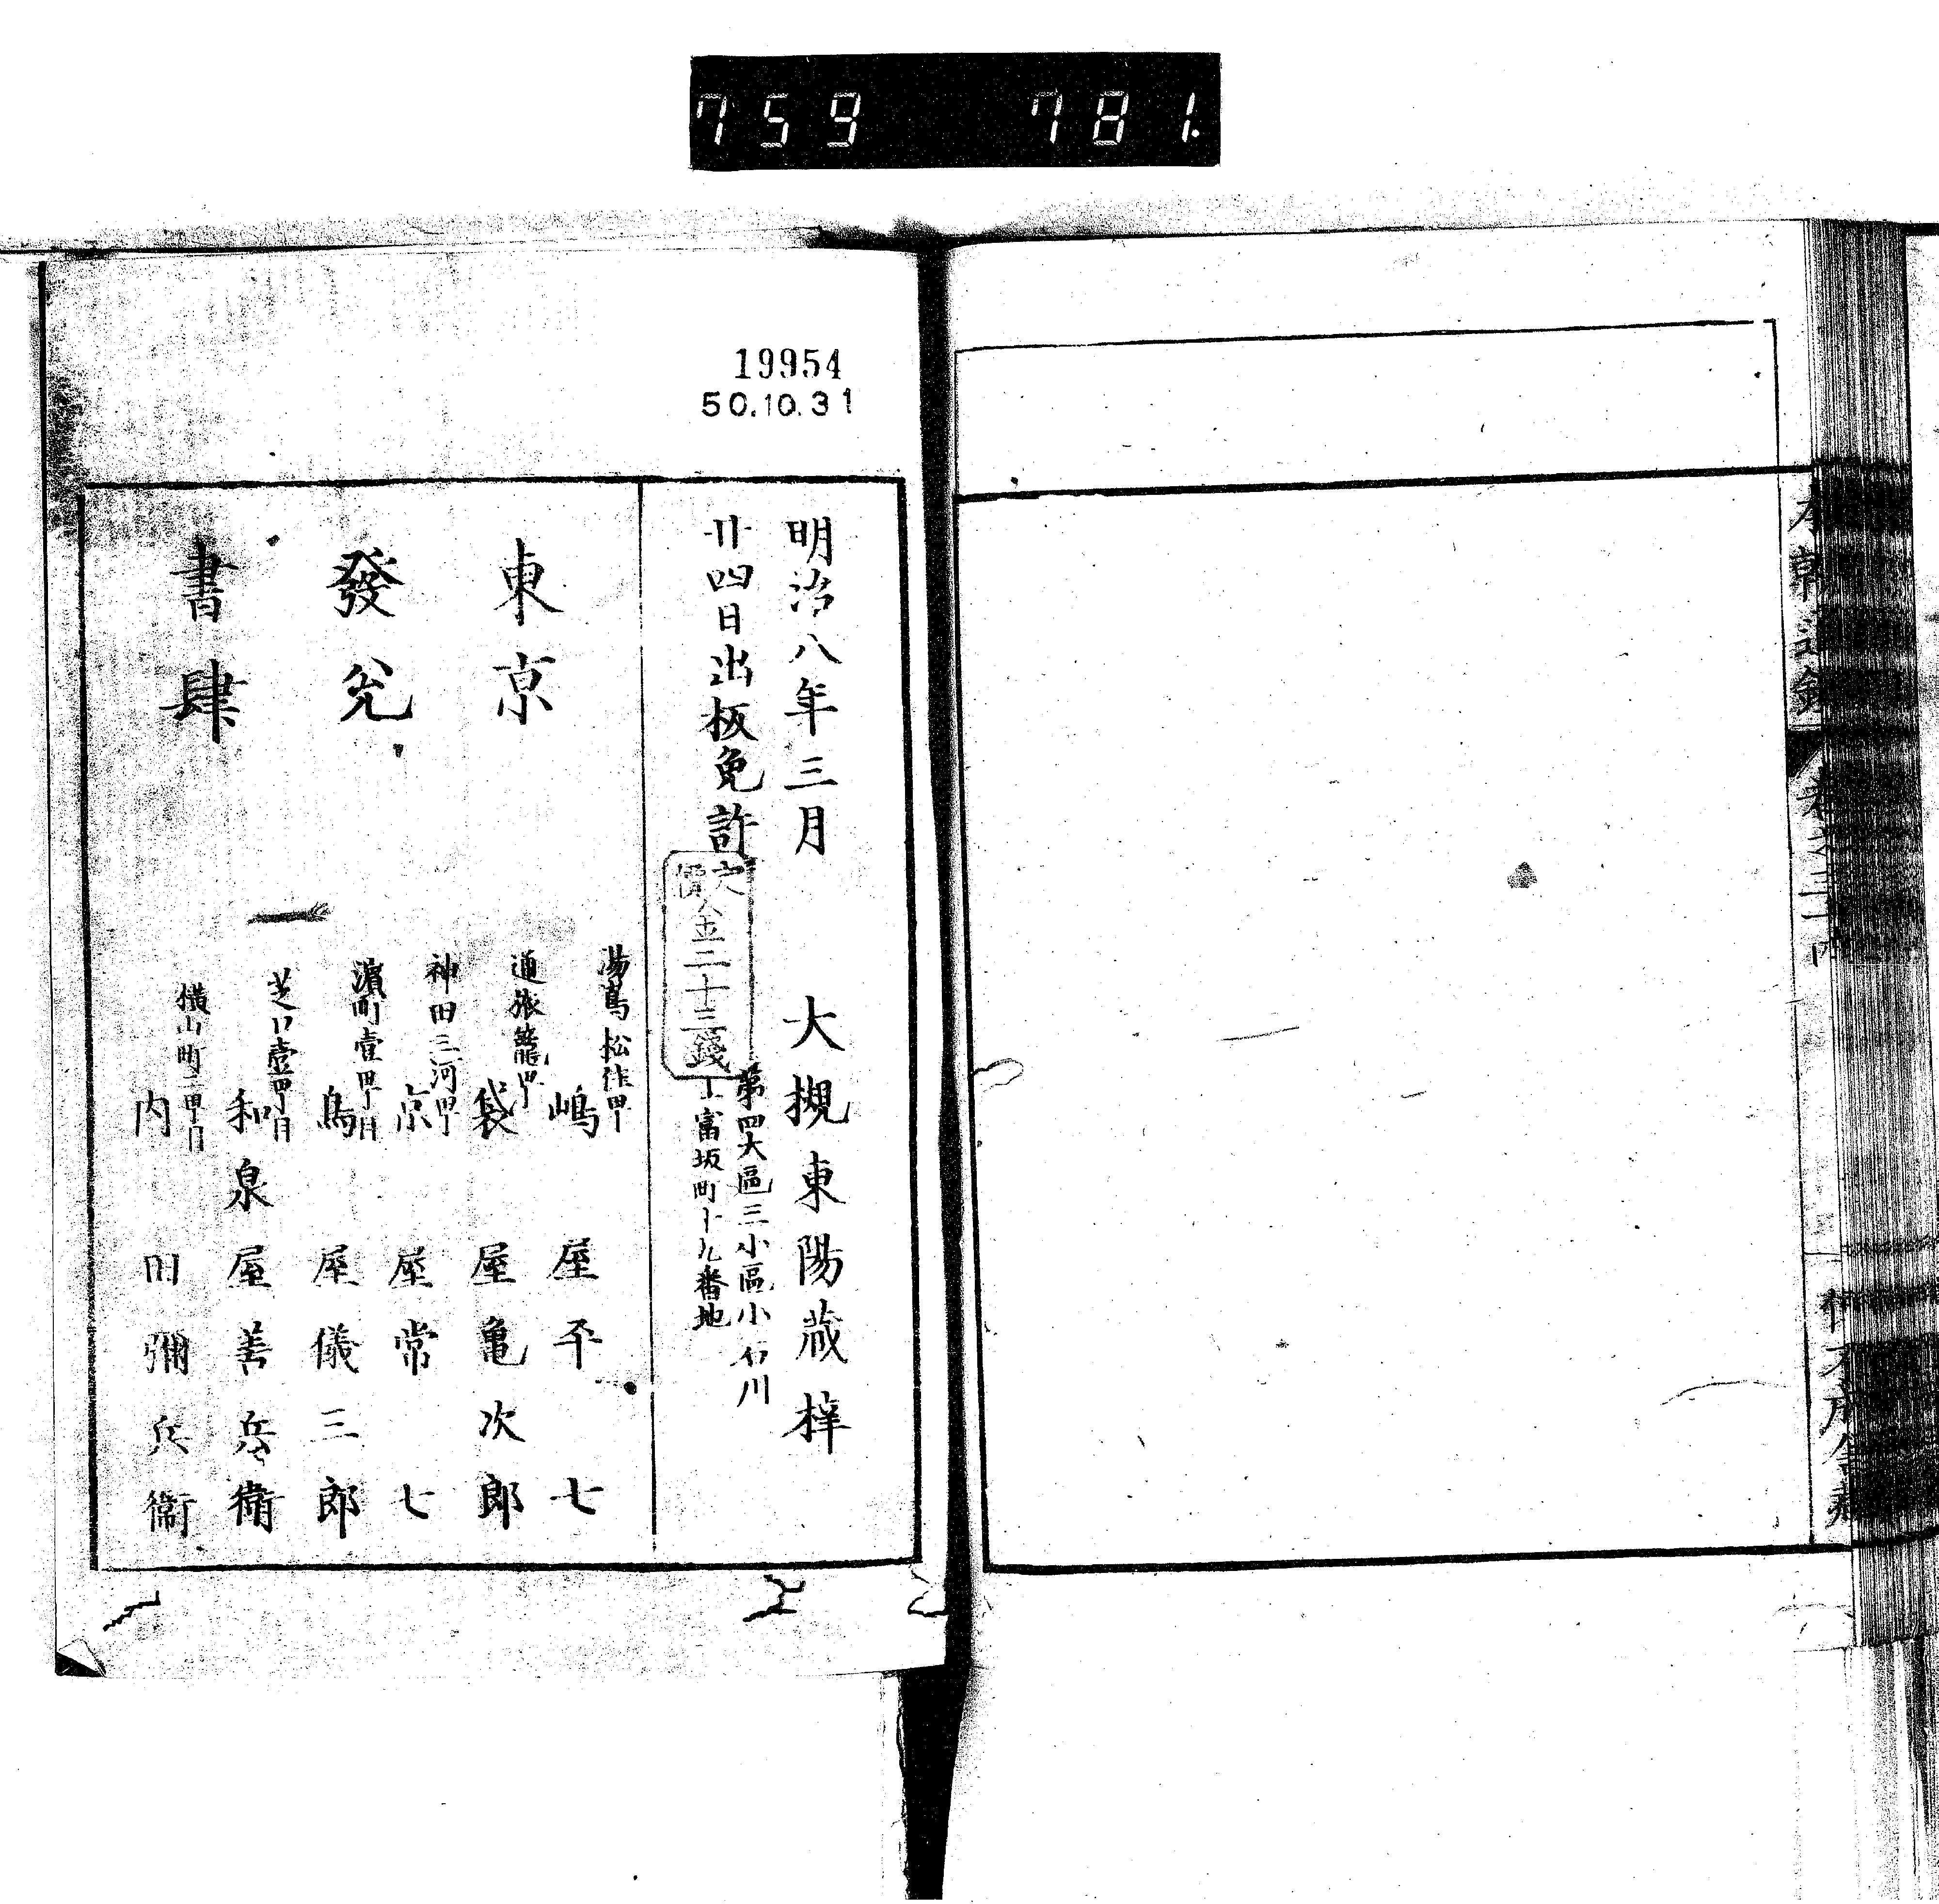 759 781.
19954
50.10.31
明治八年三月
廿四日出板免許
定價金二十三錢
大槻東陽蔵梓
第四大區三小區小石川
上富坂町十九番地
東京
發兌
書肆
湯島松住町
嶋屋平七
通旅籠町
袋屋亀次郎
神田三河町
京屋常七
濵町壹町目
鳥屋儀三郎
芝口壹町目
和泉屋善兵衛
横山町二町目
内田彌兵衞